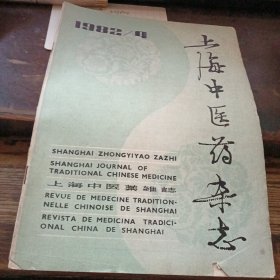 1982/9
上海中医药杂志
SHANGHAI ZHONGYIYAO ZAZHI
SHANGHAI JOURNAL OF
TRADITIONAL CHINESE MEDICINE
上海中医薬雜誌
REVUE DE MEDECINE TRADITION-
NELLE CHINOISE DE SHANGHAI
REVISTA DE MEDICINA TRADICI-
ONAL CHINA DE SHANGHAI